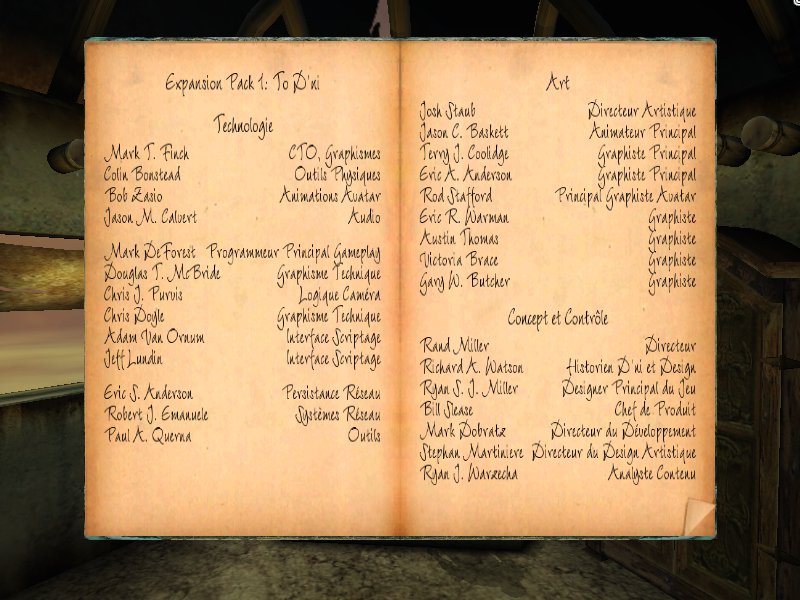 Expansion Pack 1: To D'ni
Technologie
Mark T. Finch CTO, Graphismes
Colin Bonstead Outils Physiques
Bob Zasio Animations Avatar
Jason M. Calvert Audio
Mark DeForest Programmeur Principal Gameplay
Douglas T. McBride Graphisme Technique
Chris J. Purvis Logique Caméra
Chris Doyle Graphisme Technique
Adam Van Ornum Interface Scriptage
Jeff Lundin Interface Scriptage
Eric S. Anderson Persistance Réseau
Robert J. Emanuele Systèmes Réseau
Paul A. Querna Outils
Art
Josh Staub Directeur Artistique
Jason C. Baskett Animateur Principal
Terry J. Coolidge Graphiste Principal
Eric A. Anderson Graphiste Principal
Rod Stafford Principal Graphiste Avatar
Eric R. Warman Graphiste
Austin Thomas Graphiste
Victoria Brace Graphiste
Gary W. Butcher Graphiste
Concept et Contrôle
Rand Miller Directeur
Richard A. Watson Historien D'ni et Design
Ryan S. J. Miller Designer Principal du Jeu
Bill Slease Chef de Produit
Mark Dobratz Directeur du Développement
Stephan Martiniere Directeur du Design Artistique
Ryan J. Warzecha Analyste Contenu